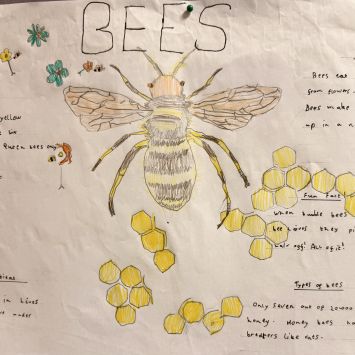 BEES
yellow
six
Queen bees only
Bees eat
from flowers.
Bees make
up in a
Fun Fact
when bumble bees
bee hives they
hair off! All of it!
in hives
maker
Types of bees
Only seven out of 20000
honey. Honey bees ha
breathers like cats.